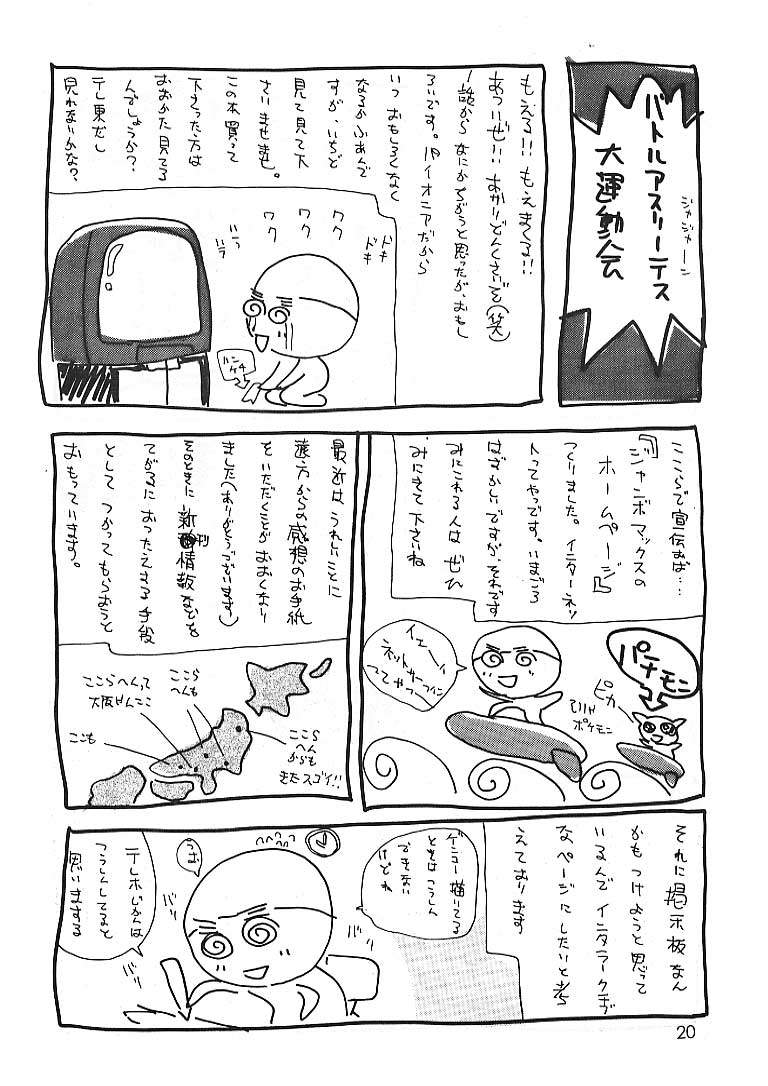 ジャジャーン
バトルアスリーテス
大運動会
もえる!! もえまくる!!
あついぜ!! あかりどんくさいぞ(笑)
1話からなにかちがうと思ったが、おもし
ろいです。パイオニアだから
いつおもしろくなく
なるかふあんで
すが、いちど
見て見て下
さいませませ。
この本買って
下さった方は
おおかた見てる
んでしょうか?
テレ東だし
見れないかな?
ドキ
ドキ
ワク
ワク
ワク
ハラ
ハラ
ハンケチ
ここらで宣伝おば…
『ジャンボマックスの
ホームページ』
つくりました。インターネッ
トってやつです。いまごろ
はずかしいですが、それです
みにこれる人はぜひ
みにきて下さいね
イェーイ
ネットサーフィン
ってやつ
パチモン
ピカ
ひりゃ
ポケモン
最近はうれしいことに
遠方からの感想のお手紙
をいただくことがおおくなり
ました(ありがとうございます)
そのときに新刊情報などを
てがるにおつたえする手段
としてつかってもらおうと
おもっています。
ここら
へんも
ここらへんって
大阪せんここ
ここも
ここら
へん
からも
きたスゴイ!!
それに掲示板なん
かもつけようと思って
いるんでインタラークチヴ
なページにしたいと考
えております
ゲンコー描いてる
ときはこうしん
できない
けどね
うむ
バリ
バリ
バリ
テレホじかんは
こうしんしてると
思いまする
20